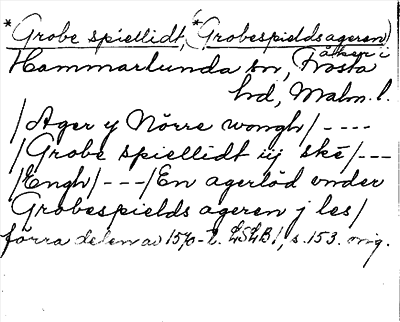 *Grobe spiellidt, (*Grobespieldsageren)
åker i
Hammarlunda sn, Frosta
hd, Malm. l.
/Ager y Nörre wongh/ ----
/Grobe spiellidt iij ske/---
/Engh/---/En agerlöd under
Grobespields ageren j les/
förra delen av 1570-t. LSLB1, s. 153. orig.